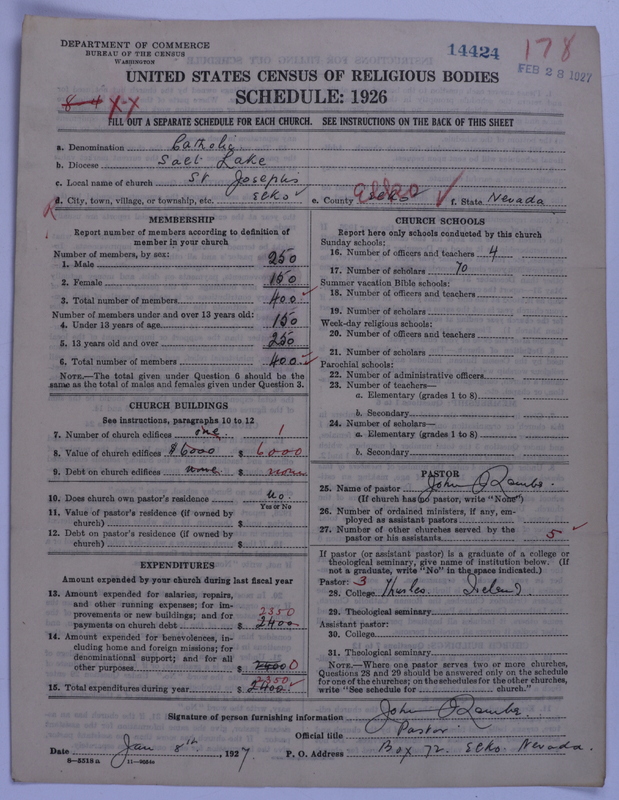 DEPARTMENT OF COMMERCE
BUREAU OF THE CENSUS
WASHINGTON
14424
178
FEB 28 1927
UNITED STATES CENSUS OF RELIGIOUS BODIES
SCHEDULE: 1926
8-4 X-X
FILL OUT A SEPARATE SCHEDULE FOR EACH CHURCH. SEE INSTRUCTIONS ON THE BACK OF THIS SHEET
a. Denomination Catholic
b. Diocese Salt Lake
c. Local name of church St Josephs
d. City, town, village, or township, etc. Elko e. County Elko f. State Nevada
MEMBERSHIP
Report number of members according to definition of
member in your church
Number of members, by sex:
1. Male 250
2. Female 150
3. Total number of members 400
Number of members under and over 13 years old:
4. Under 13 years of age 150
5. 13 years old and over 250
6. Total number of members 400
NOTE.—The total given under Question 6 should be the
same as the total of males and females given under Question 3.
CHURCH BUILDINGS
See instructions, paragraphs 10 to 12
7. Number of church edifices one 1
8. Value of church edifices $6000 $ 6000
9. Debt on church edifices none $ none
10. Does church own pastor's residence No
Yes or No
11. Value of pastor's residence (if owned by
church) $
12. Debt on pastor's residence (if owned by
church) $
EXPENDITURES
Amount expended by your church during last fiscal year
13. Amount expended for salaries, repairs,
and other running expenses; for im-
provements or new buildings; and for
payments on church debt $ 2350 2400
14. Amount expended for benevolences, in-
cluding home and foreign missions; for
denominational support; and for all
other purposes $ 0
15. Total expenditures during year $ 2350 2400
CHURCH SCHOOLS
Report here only schools conducted by this church
Sunday schools:
16. Number of officers and teachers 4
17. Number of scholars 70
Summer vacation Bible schools:
18. Number of officers and teachers
19. Number of scholars
Week-day religious schools:
20. Number of officers and teachers
21. Number of scholars
Parochial schools:
22. Number of administrative officers
23. Number of teachers—
a. Elementary (grades 1 to 8)
b. Secondary
24. Number of scholars—
a. Elementary (grades 1 to 8)
b. Secondary
PASTOR
25. Name of pastor John
(If church has no pastor, write "None")
26. Number of ordained ministers, if any, em-
ployed as assistant pastors
27. Number of other churches served by the
pastor or his assistants 5
If pastor (or assistant pastor) is a graduate of a college or
theological seminary, give name of institution below. (If
not a graduate, write "No" in the space indicated.)
Pastor: 3
28. College Thurles. Ireland.
29. Theological seminary
Assistant pastor:
30. College
31. Theological seminary
NOTE.—Where one pastor serves two or more churches,
Questions 28 and 29 should be answered only on the schedule
for one of the churches; on the schedules for the other churches,
write "See schedule for church."
Signature of person furnishing information John
Official title Pastor
Date Jan 8th, 1927 P. O. Address Box 72. Elko. Nevada.
8-5518a 11-9054a